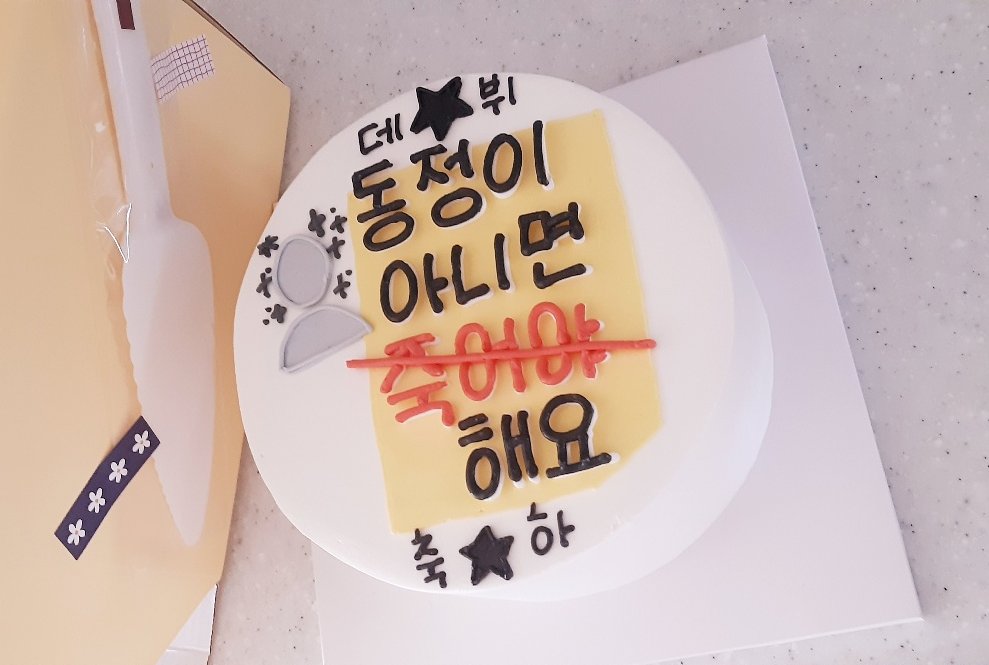 데★뷔
동정이
아니면
죽어야
해요
축★하